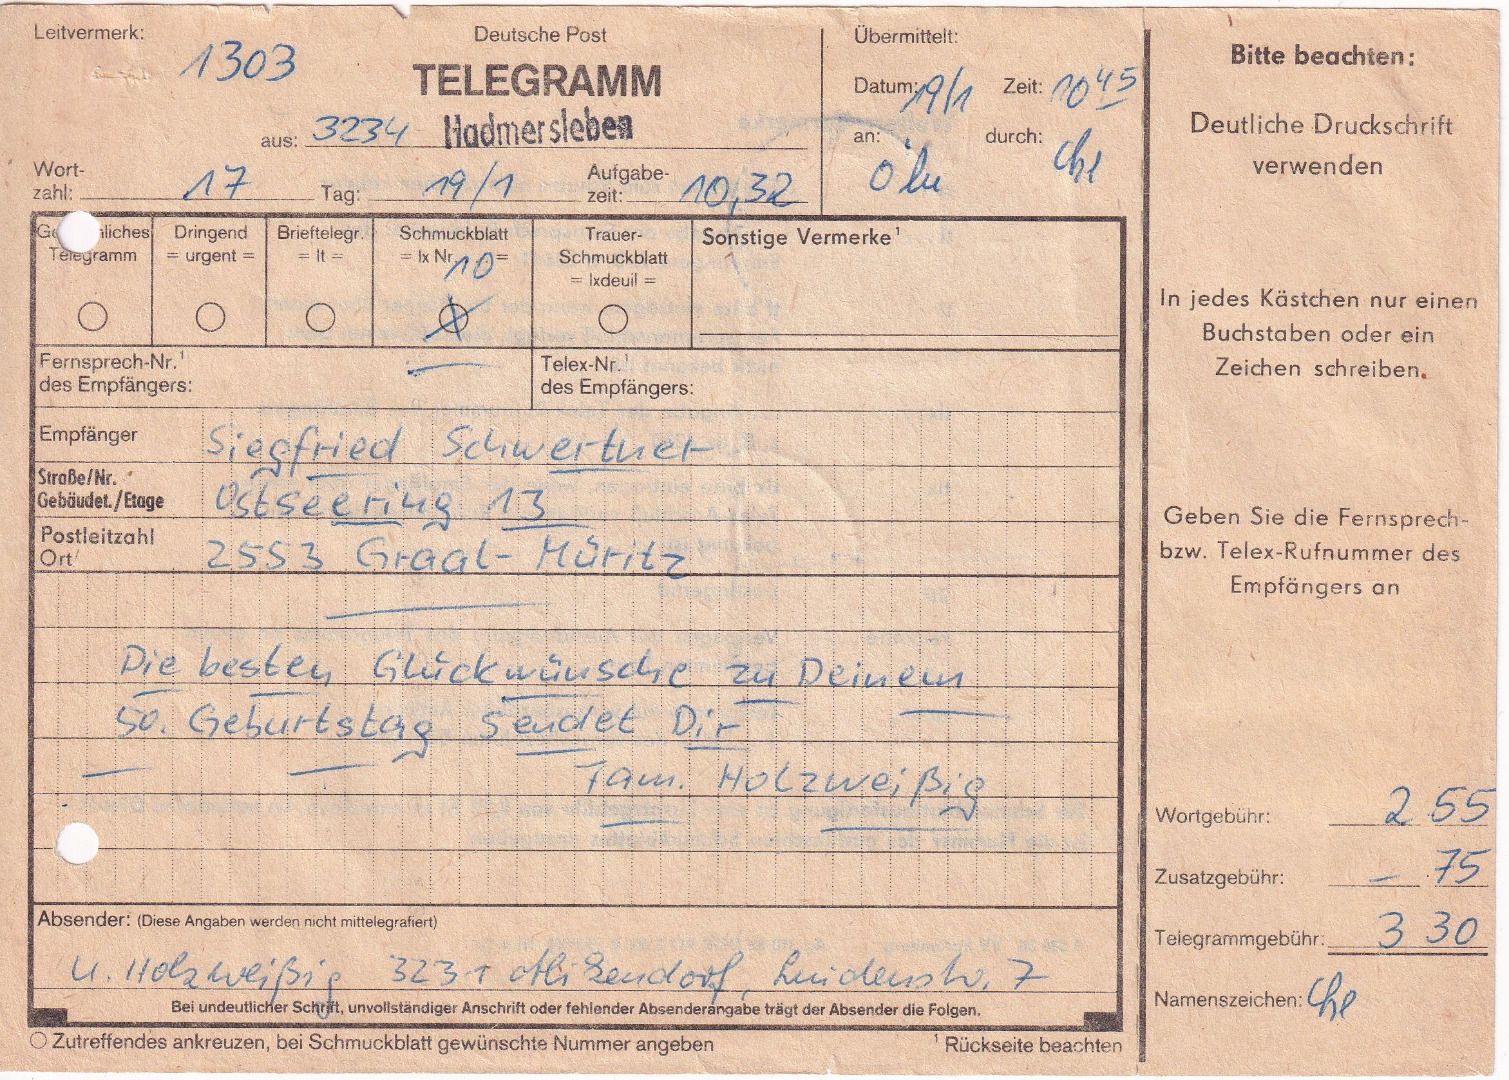 Leitvermerk: 1303
Deutsche Post
TELEGRAMM
aus: 3234 Hadmersleben
Wort-
zahl: 17 Tag: 19/1 Aufgabe-
zeit: 10,32
Übermittelt:
Datum: 19/1 Zeit: 10 45
an: durch:
Ge liches
Telegramm
Dringend
= urgent =
Brieftelegr.
= lt =
Schmuckblatt
= lx Nr. 10 =
Trauer-
Schmuckblatt
= lxdeuil =
Sonstige Vermerke¹
Fernsprech-Nr.¹
des Empfängers:
Telex-Nr.¹
des Empfängers:
Empfänger Siegfried Schwertner
Straße/Nr.
Gebäudet./Etage Ostseering 13
Postleitzahl
Ort 2553 Graal-Müritz
Die besten Glückwünsche zu Deinem
50. Geburtstag sendet Dir
Fam. Holzweißig
Absender: (Diese Angaben werden nicht mittelegrafiert)
U. Holzweißig 3231 7
Bei undeutlicher Schrift, unvollständiger Anschrift oder fehlender Absenderangabe trägt der Absender die Folgen.
Zutreffendes ankreuzen, bei Schmuckblatt gewünschte Nummer angeben
¹ Rückseite beachten
Bitte beachten:
Deutliche Druckschrift
verwenden
In jedes Kästchen nur einen
Buchstaben oder ein
Zeichen schreiben.
Geben Sie die Fernsprech-
bzw. Telex-Rufnummer des
Empfängers an
Wortgebühr: 2 55
Zusatzgebühr: – 75
Telegrammgebühr: 3 30
Namenszeichen: